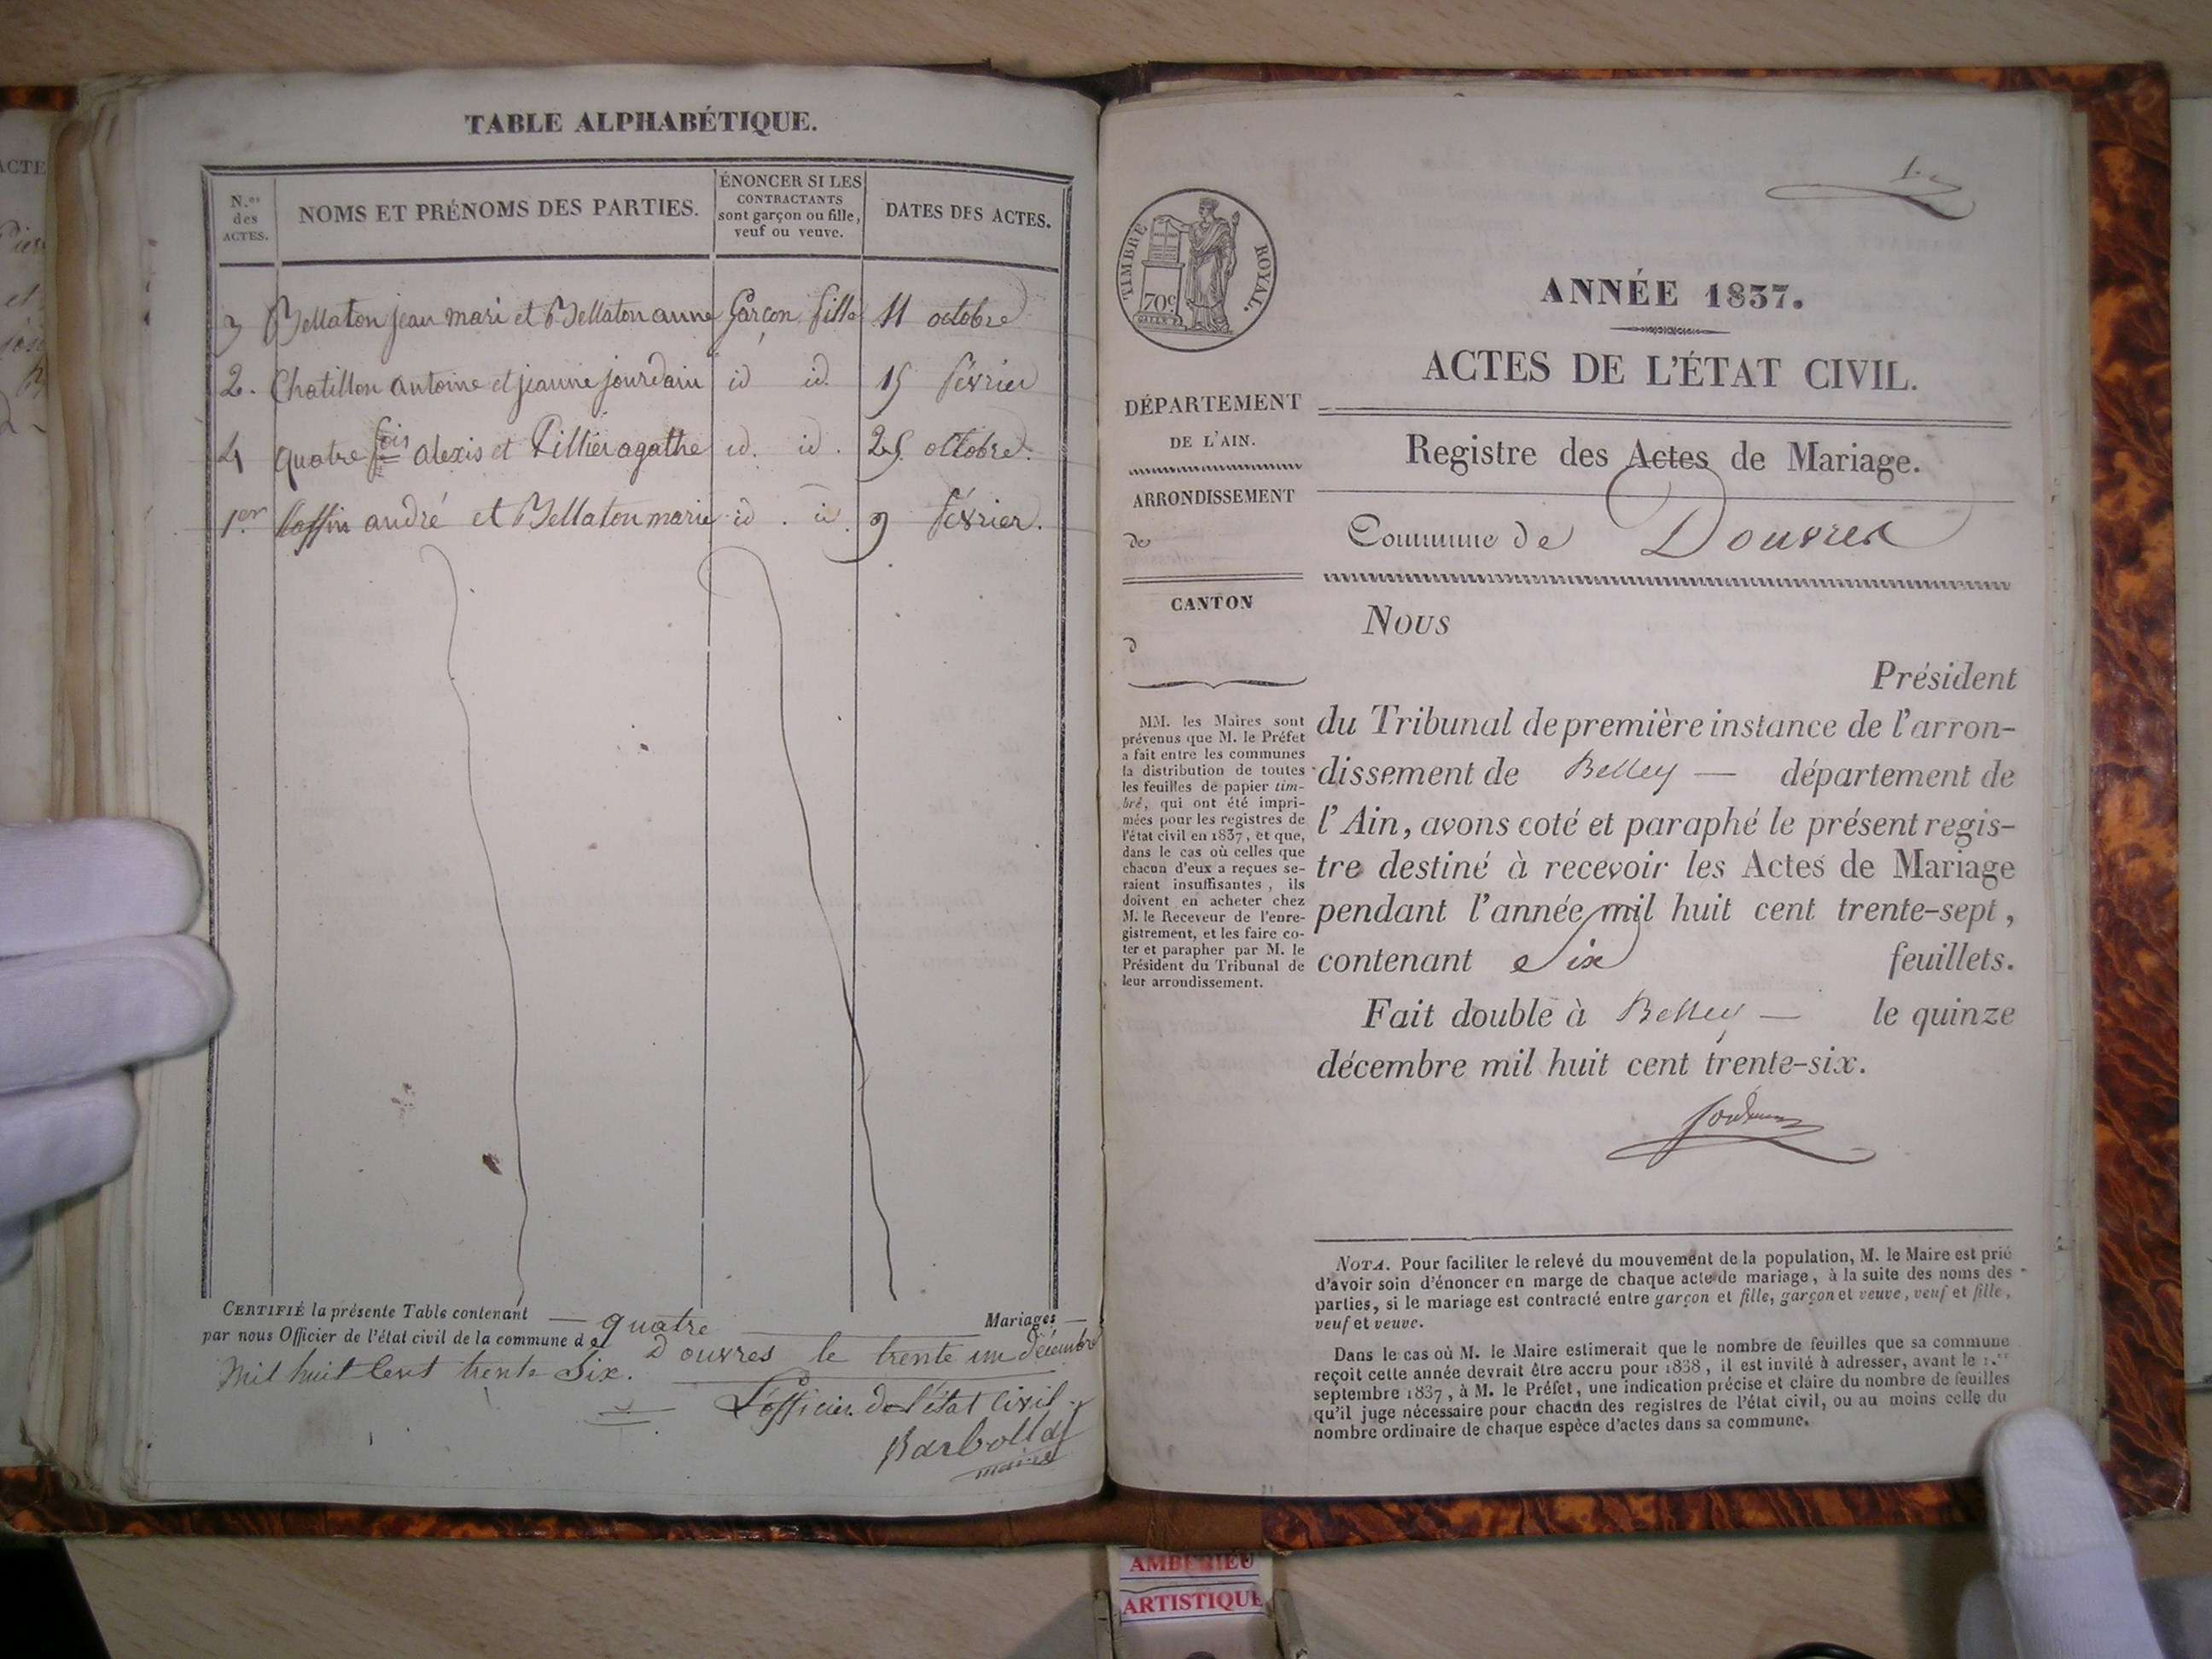 ACTE
et
TABLE ALPHABÉTIQUE.
N.os des ACTES.
NOMS ET PRÉNOMS DES PARTIES.
ÉNONCER SI LES
CONTRACTANTS
sont garçon ou fille,
veuf ou veuve.
DATES DES ACTES.
3 Bellaton jean mari et Bellaton anne Garçon fille 11 octobre
2. Chatillon antoine et jeanne jourdain id id. 15 février
4 quatre fois alexis et Tillier agathe id. id. 25 octobre.
1.er andré et Bellaton marie id. id. 9 février.
CERTIFIÉ la présente Table contenant — quatre — Mariages —
par nous Officier de l'état civil de la commune de Douvres le trente un décembre
Mil huit Cent trente Six.
L'officier de l'état Civil.
maire
1.er
TIMBRE ROYAL.
70c
ANNÉE 1837.
ACTES DE L'ÉTAT CIVIL.
DÉPARTEMENT
DE L'AIN.
ARRONDISSEMENT
de
CANTON
d
Registre des Actes de Mariage.
Commune de Douvres
Nous
Président
du Tribunal de première instance de l'arron-
dissement de Belley — département de
l'Ain, avons coté et paraphé le présent regis-
tre destiné à recevoir les Actes de Mariage
pendant l'année mil huit cent trente-sept,
contenant Six feuillets.
Fait double à Belley — le quinze
décembre mil huit cent trente-six.
MM. les Maires sont
prévenus que M. le Préfet
a fait entre les communes
la distribution de toutes
les feuilles de papier tim-
bré, qui ont été impri-
mées pour les registres de
l'état civil en 1837, et que,
dans le cas où celles que
chacun d'eux a reçues se-
raient insuffisantes, ils
doivent en acheter chez
M. le Receveur de l'enre-
gistrement, et les faire co-
ter et parapher par M. le
Président du Tribunal de
leur arrondissement.
NOTA. Pour faciliter le relevé du mouvement de la population, M. le Maire est prié
d'avoir soin d'énoncer en marge de chaque acte de mariage, à la suite des noms des
parties, si le mariage est contracté entre garçon et fille, garçon et veuve, veuf et fille,
veuf et veuve.
Dans le cas où M. le Maire estimerait que le nombre de feuilles que sa commune
reçoit cette année devrait être accru pour 1838, il est invité à adresser, avant le 1.er
septembre 1837, à M. le Préfet, une indication précise et claire du nombre de feuilles
qu'il juge nécessaire pour chacun des registres de l'état civil, ou au moins celle du
nombre ordinaire de chaque espèce d'actes dans sa commune.
AMBERIEU
ARTISTIQUE